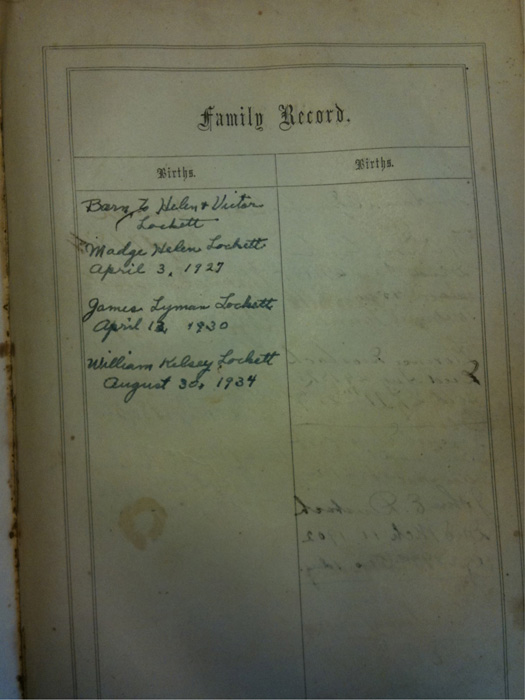 Family Record.
Births.
Births.
Born to Helen & Victor
Lockett
Madge Helen Lockett
April 3, 1927
James Lyman Lockett
April 13, 1930
William Kelsey Lockett
August 30, 1934